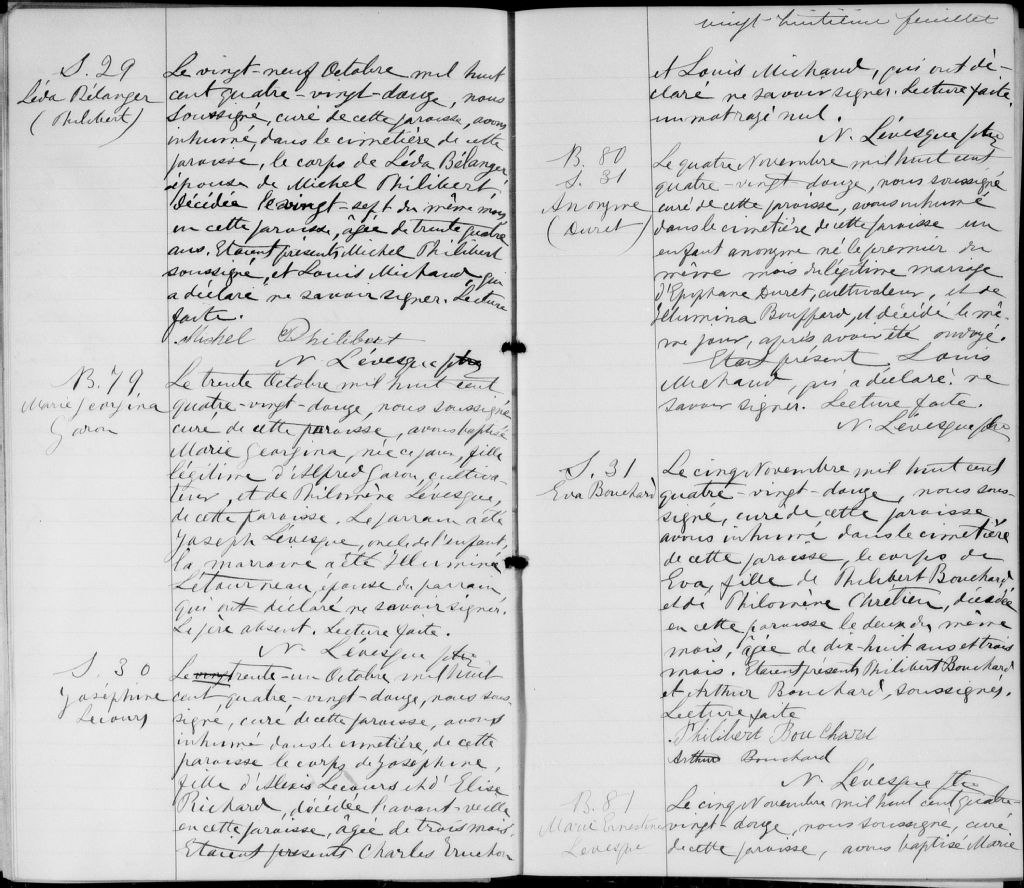 S. 29
Léda Bélanger
(Philibert)
Le vingt-neuf Octobre mil huit
cent quatre-vingt-douze, nous
soussigné, curé de cette paroisse, avons
inhumé dans le cimetière de cette
paroisse, le corps de Léda Bélanger
épouse de Michel Philibert,
décédée le vingt-sept du même mois
en cette paroisse, âgée de trente quatre
ans. Etaient présents Michel Philibert
soussigné, et Louis Michaud qui
a déclaré ne savoir signer. Lecture
faite.
Michel Philibert
N. Lévesque ptre
B. 79
Marie Georgina
Garon
Le trente Octobre mil huit cent
quatre-vingt-douze, nous soussigné
curé de cette paroisse, avons baptisé
Marie Georgina, née ce jour, fille
légitime d'Alfred Garon, cultiva-
teur, et de Philomène Lévesque,
de cette paroisse. Le parrain a été
Joseph Lévesque, oncle de l'enfant,
la marraine a été Illuminé
Létourneau, épouse du parrain,
qui ont déclaré ne savoir signer.
Le père absent. Lecture faite.
N. Lévesque ptre
S. 30
Joséphine
Lecours
Le vingt trente-un Octobre mil huit
cent quatre-vingt-douze, nous sous-
signé, curé de cette paroisse, avons
inhumé dans le cimetière, de cette
paroisse le corps de Josephine,
fille d'Alexis Lecours et d'Elise
Richard, décédée l'avant-veille
en cette paroisse, âgée de trois mois.
Etaient présents Charles
vingt-huitième feuillet
et Louis Michaud, qui ont dé-
claré ne savoir signer. Lecture faite,
un mot rayé nul.
N. Lévesque ptre
B. 80
S. 31
Anonyme
(Duret)
Le quatre Novembre mil huit cent
quatre-vingt douze, nous soussigné
curé de cette paroisse, avons inhumé
dans le cimetière de cette paroisse un
enfant anonyme né le premier du
même mois du légitime mariage
d'Epiphane Duret, cultivateur, et de
Illumina Bouffard, et décédé le mê-
me jour, après avoir été ondoyé.
Etait présent Louis
Michaud, qui a déclaré ne
savoir signer. Lecture faite.
N. Lévesque ptre
S. 31
Eva Bouchard
Le cinq Novembre mil huit cent
quatre-vingt-douze, nous sous-
signé, curé de cette paroisse
avons inhumé dans le cimetière
de cette paroisse, le corps de
Eva, fille de Philibert Bouchard
et de Philomène Chrétien, décédée
en cette paroisse le deux du même
mois, âgée de dix-huit ans et trois
mois. Etaient présents Philibert Bouchard
et Arthur Bouchard, soussignés.
Lecture faite
Philibert Bouchard
Arthur Bouchard
N. Lévesque Ptre
B. 81
Marie Ernestine
Lévesque
Le cinq Novembre mil huit cent quatre-
vingt-douze, nous soussigné, curé
de cette paroisse, avons baptisé Marie